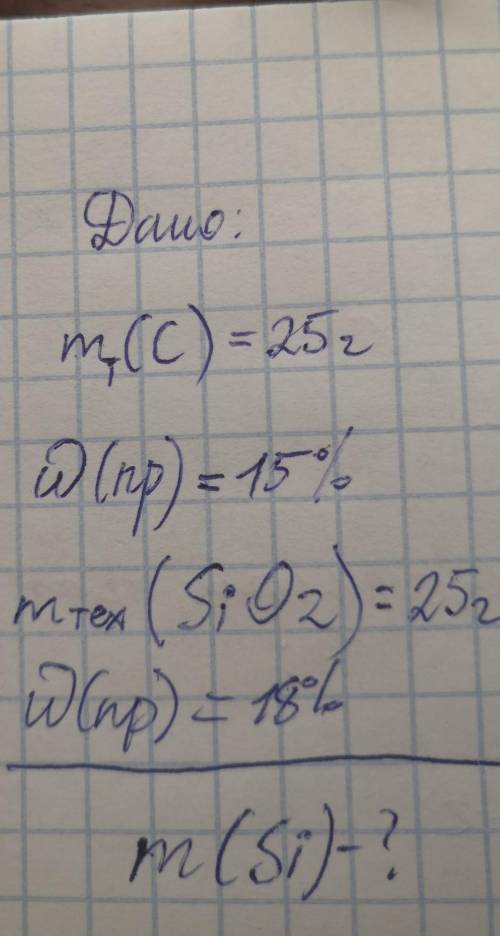 Дано:
mт(C) = 25г
W(пр) = 15%
mтех(SiO2) = 25г
W(пр) = 18%
m(Si) - ?